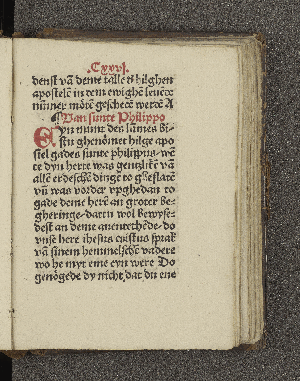 .Cxxvi.
denst vā deme talle d' hilghen
apostelē in dem ewighē leuēde
nūmer mōte gescheedē werdē A
¶ Van sunte Philippo
EYn nūnt des lāmes bi-
stu ghenōmet hilge apo
stel gades sunte philippus, wē
te dyn herte was gentzlikē vā
allē erdeschē dingē to ghestalt
vn̄ was vorder vpghedan to
gade deme herē an groter be-
gheringe, darin wol bewyse-
dest an deme auentethēde, do
vnse here ihesus cristus sprak
van sinem hemmelschē vadere
wo he myt eme eyn were Do
genōgede dy nicht dat du ene